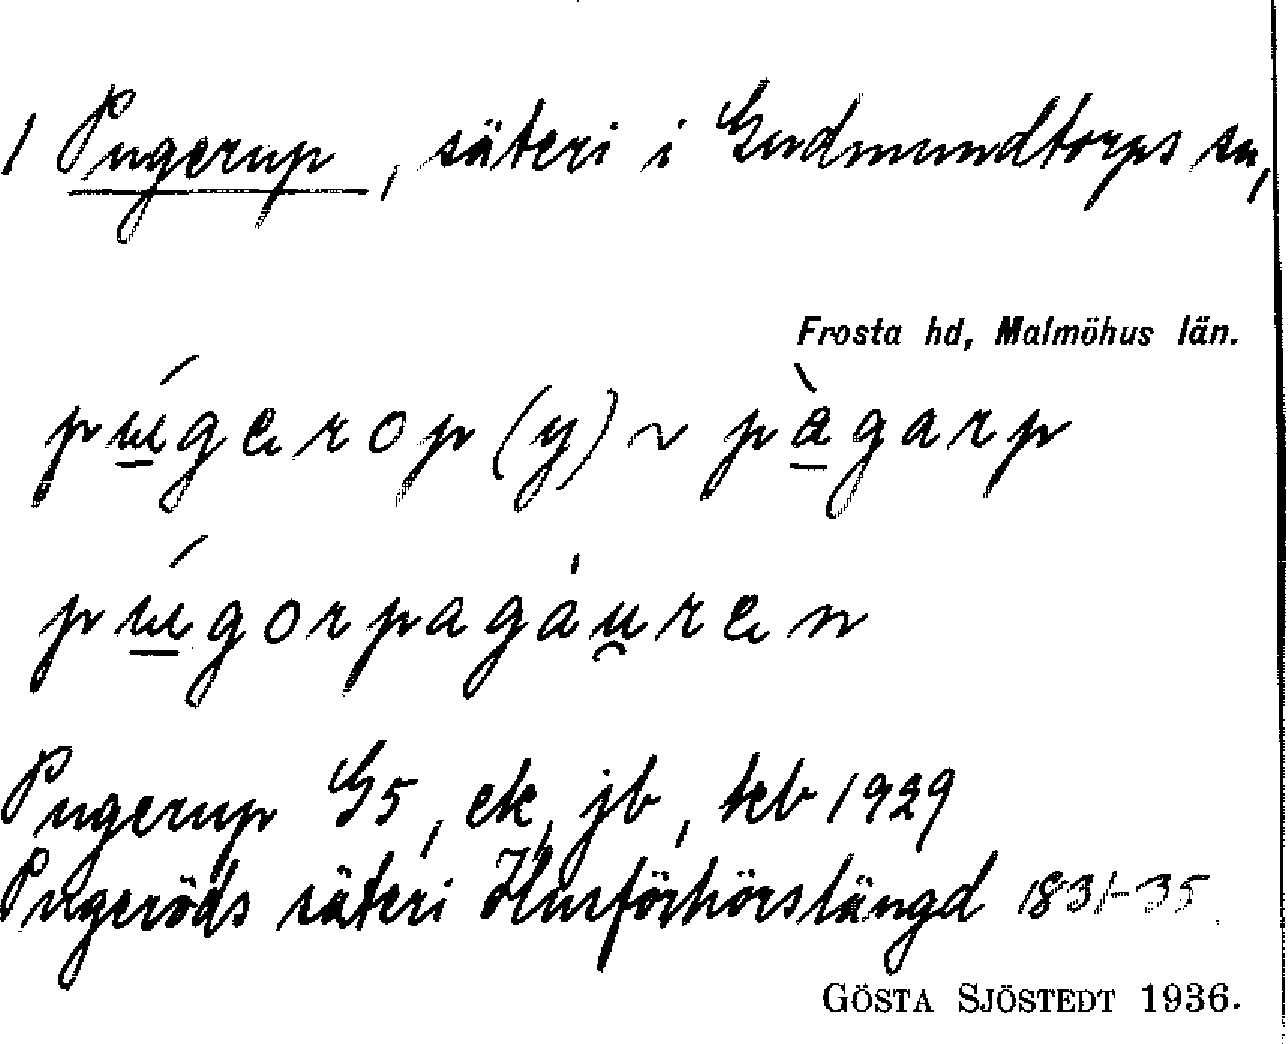 1 Pugerup, säteri i Gudmundtorps sn,
Frosta hd, Malmöhus län.
pɯ́gerop (y) ~ pàgarp
pɯ́gorpagáu̯ren
Pugerup G5, ek, jb, teb 1929
Pugeröds säteri Husförhörslängd 1831-35.
GÖSTA SJÖSTEDT 1936.